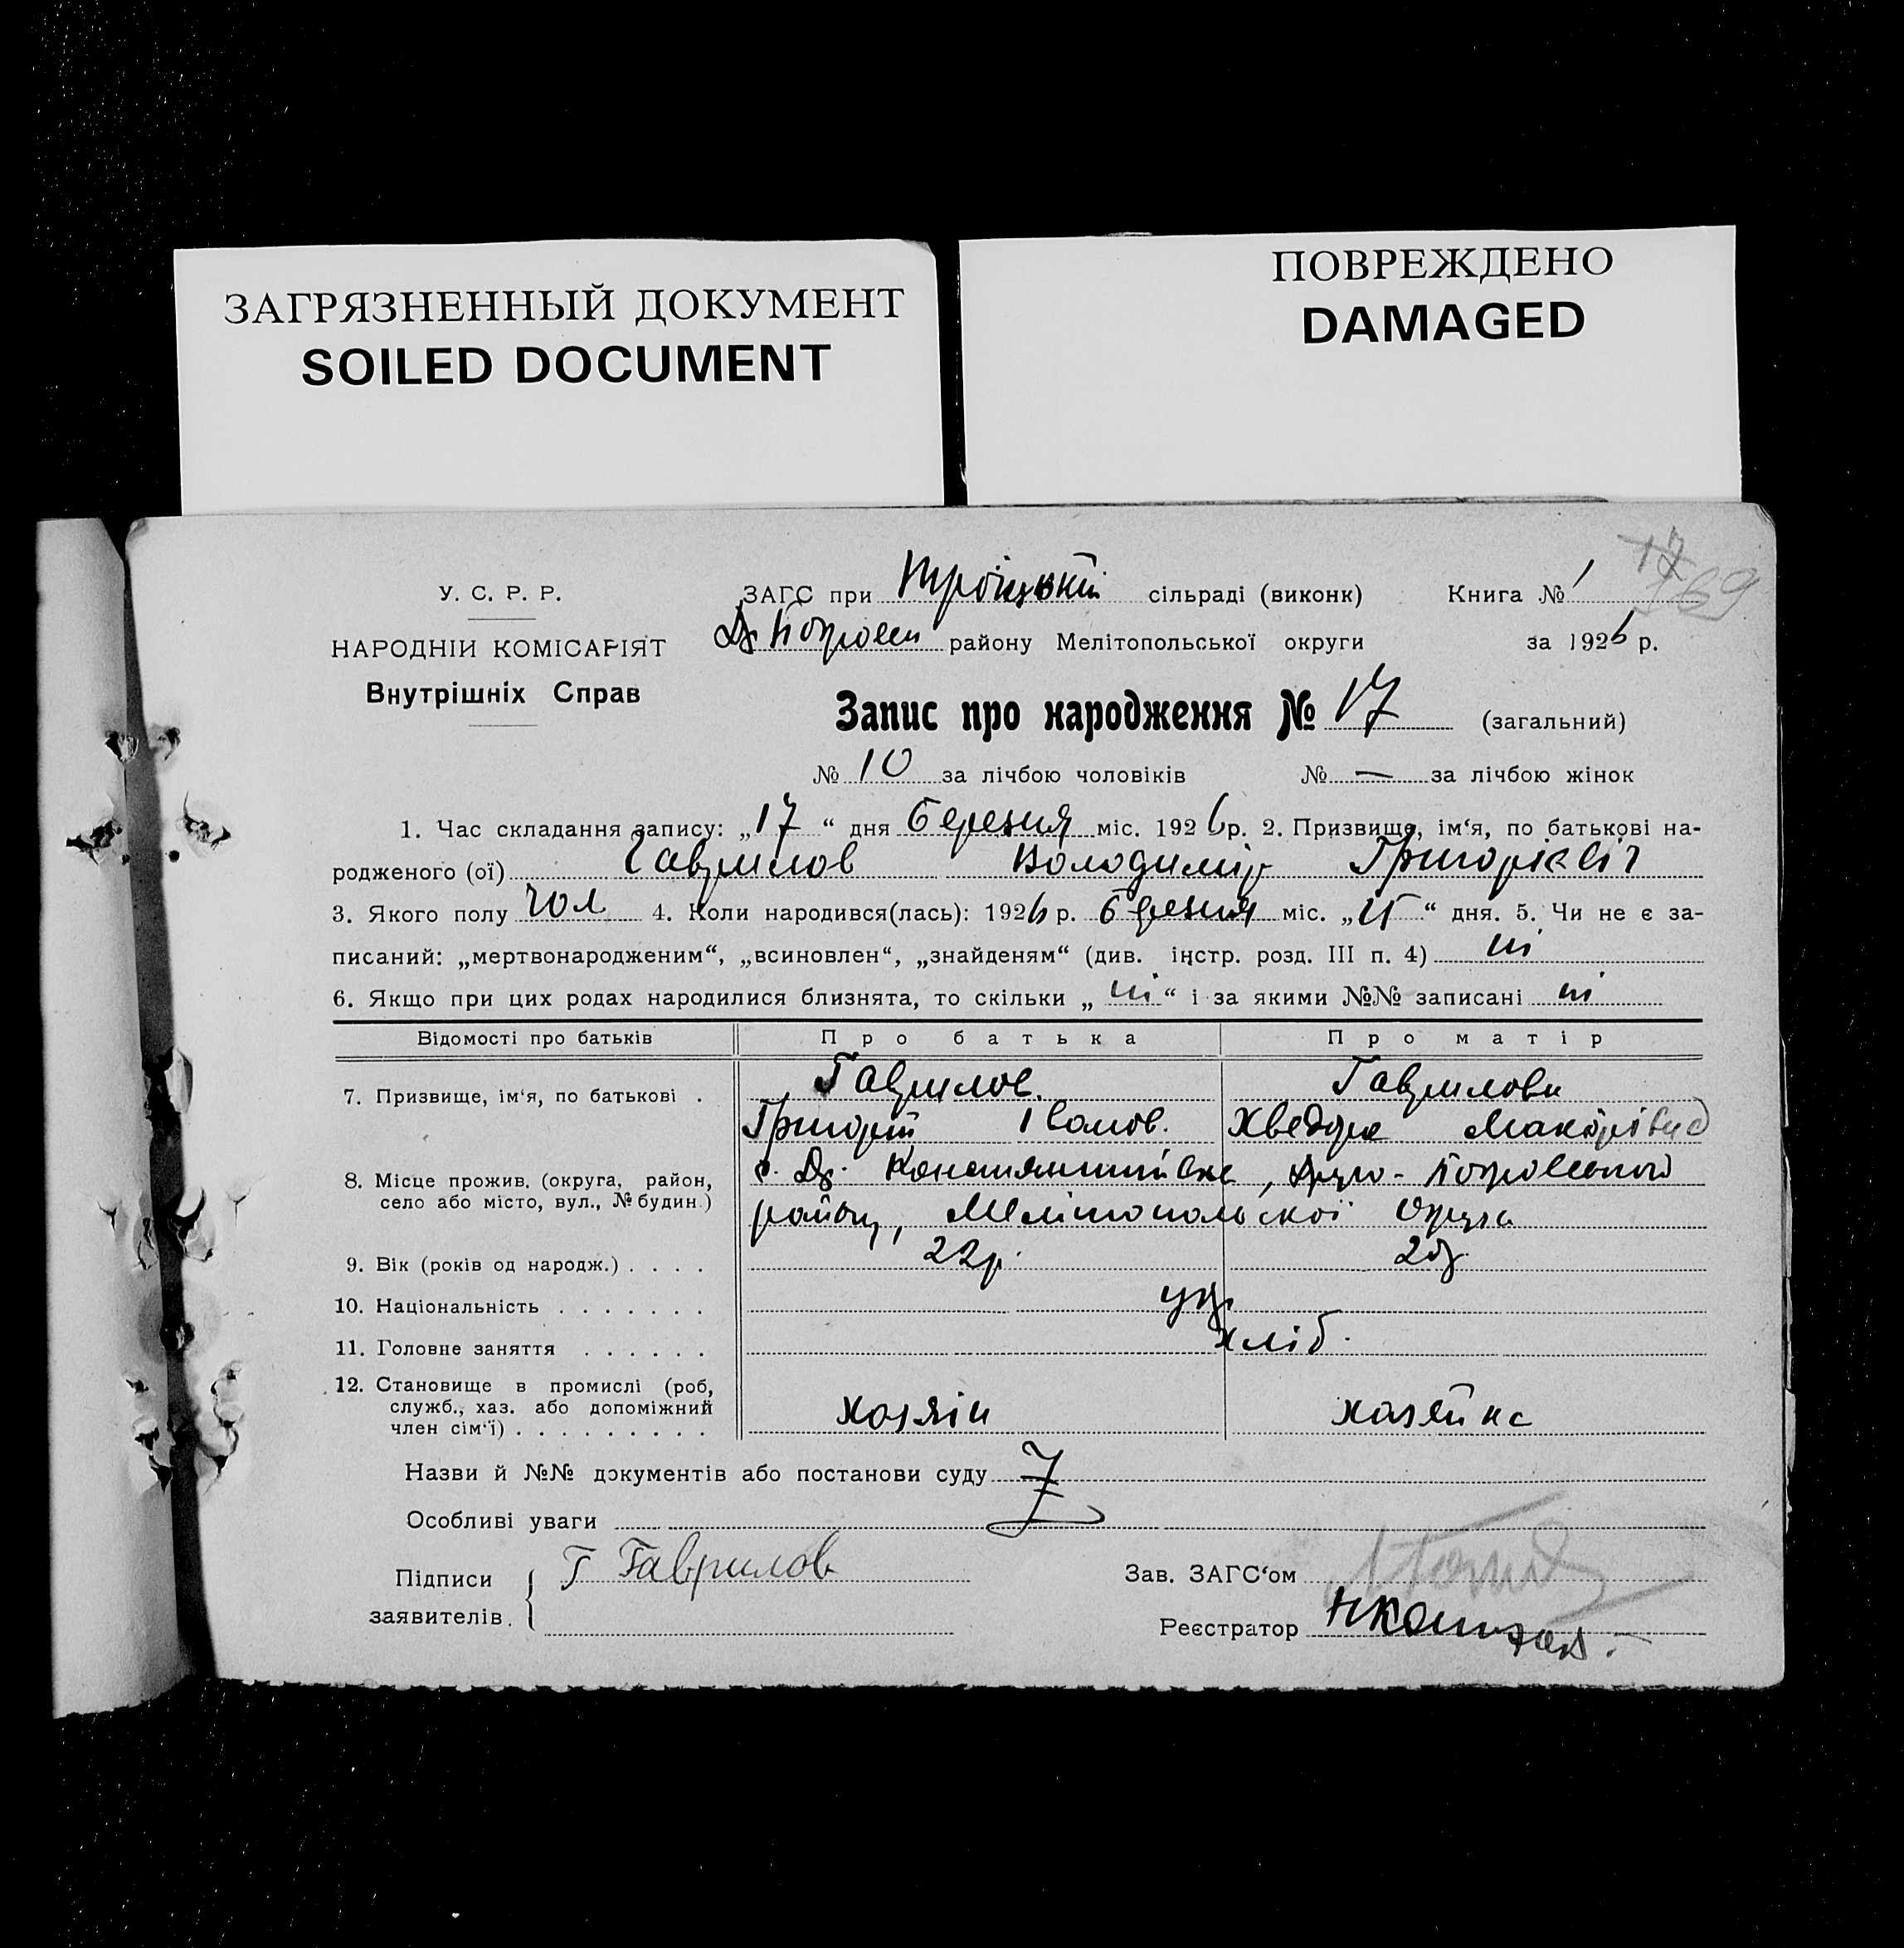 ЗАГРЯЗНЕННЫЙ ДОКУМЕНТ
SOILED DOCUMENT
ПОВРЕЖДЕНО
DAMAGED
17
369
У. С. Р. Р.
НАРОДНІИ КОМІСАРІЯТ
Внутрішніх Справ
ЗАГС при Троїцькій сільраді (виконк) Книга № 1
Др Покровськ району Мелітопольської округи за 1926 р.
Запис про народження № 17 (загальний)
№ 10 за лічбою чоловіків № — за лічбою жінок
1. Час складання запису: „17“ дня березня міс. 1926 р. 2. Призвище, ім‘я, по батькові на-
родженого (ої) Гаврилов Володимір Григорієвіч
3. Якого полу чол 4. Коли народився(лась): 1926 р. березня міс. „15“ дня. 5. Чи не є за-
писаний: „мертвонародженим“, „всиновлен“, „знайденям“ (див. інстр. розд. III п. 4) ні
6. Якщо при цих родах народилися близнята, то скільки „ні“ і за якими №№ записані ні
Відомості про батьків Про батька Про матір
7. Призвище, ім‘я, по батькові . Гаврилов. Гаврилова
Григорій Іванов. Хведора Макарівна
8. Місце прожив. (округа, район, село або місто, вул., № будин.) с. Др. Констянтинівка, Друго-Покровського
району, Мелітопольської округи
9. Вік (років од народж.) . . . . 22р.
10. Національність . . . . . . . укр
11. Головне заняття . . . . . . хліб.
12. Становище в промислі (роб, служб., хаз. або допоміжний член сім‘ї) . . . . . . . . . хозяїн хазяйка
Назви й №№ документів або постанови суду
Особливі уваги
Підписи заявителів. Г Гаврилов
Зав. ЗАГС‘ом
Реєстратор